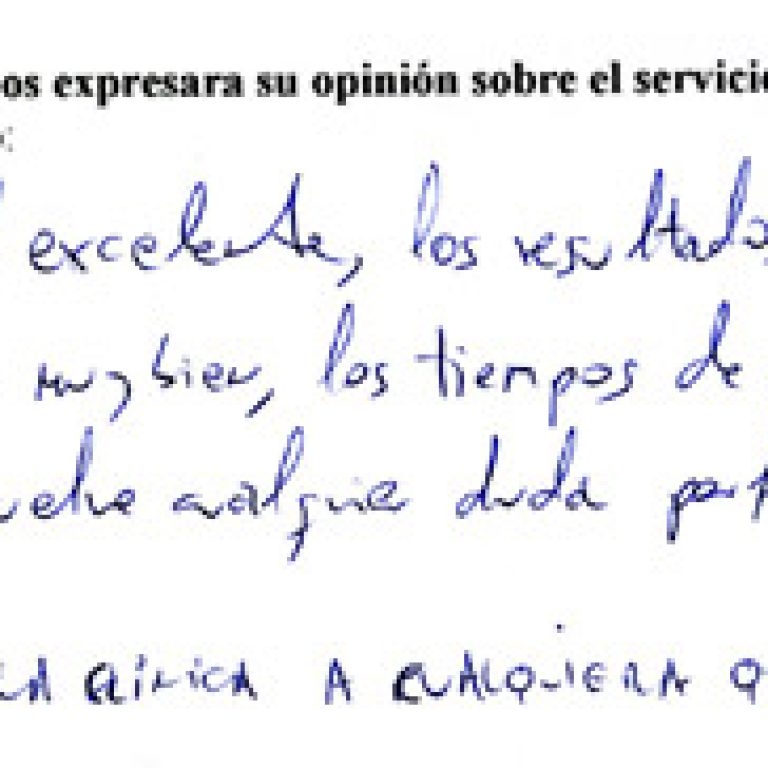 os expresara su opinión sobre el servicio
excelente, los resultados
muy bien, los tiempos de
uelve cualquier duda
LA CLÍNICA A CUALQUIERA Q